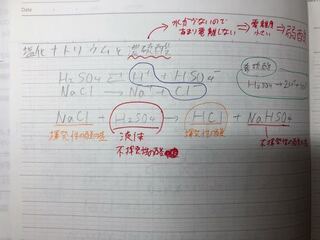 Date
水が少ないので
あまり電離しない ⇒ 電離度 小さい ⇒ 弱酸
塩化ナトリウムと濃硫酸
H₂SO₄ ⇄ H⁺ + HSO₄⁻
NaCl → Na⁺ + Cl⁻
希硫酸
H₂SO₄ → 2H⁺
NaCl + H₂SO₄ → HCl + NaHSO₄
揮発性の酸の塩
液体
不揮発性の酸
揮発性の酸
不揮発性の酸の塩